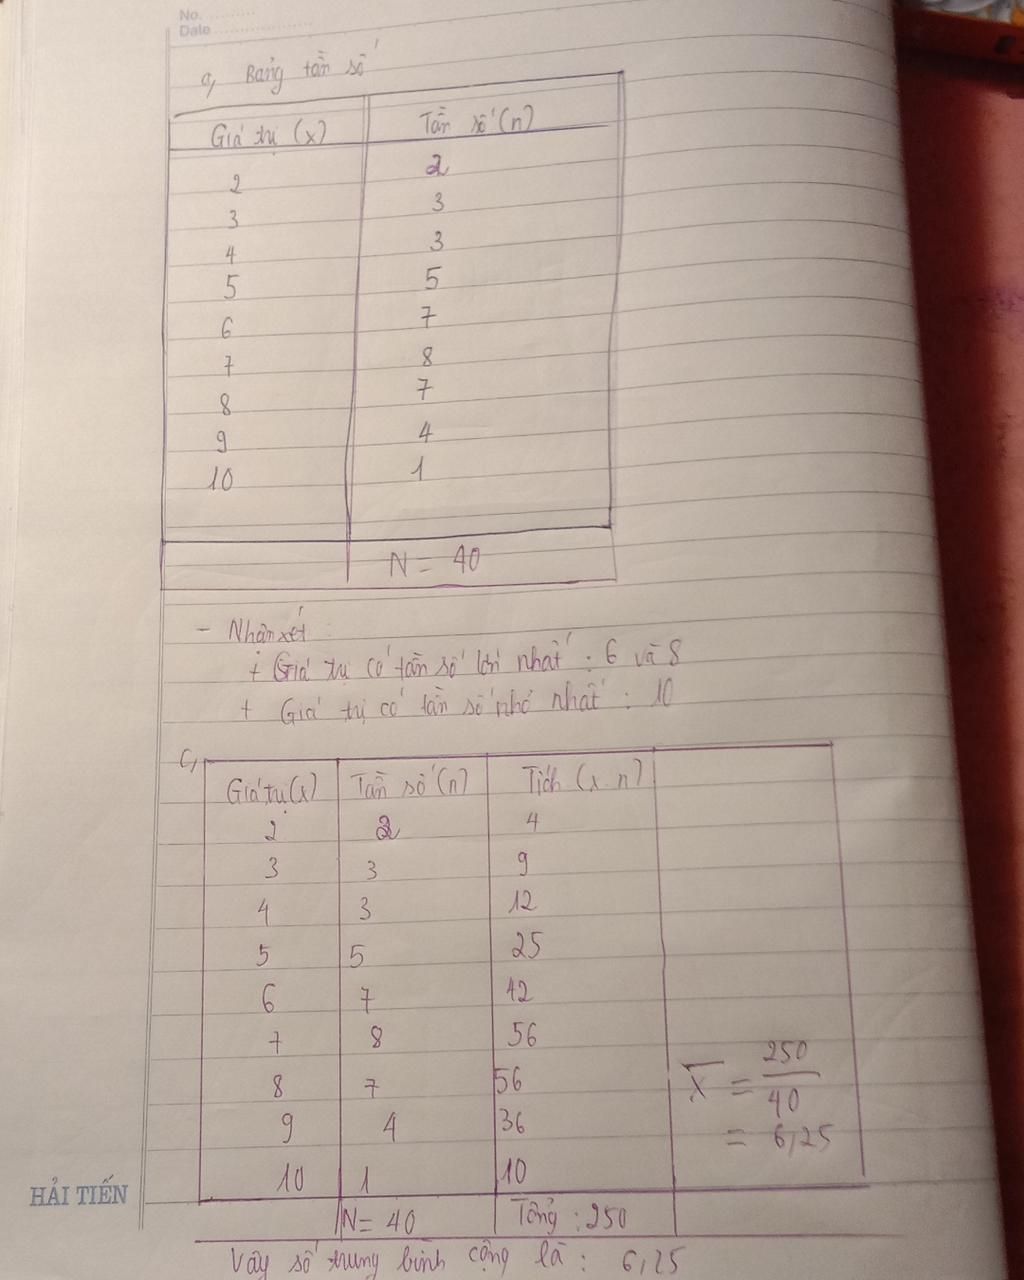 No. ..........
Date ....................
a, Bảng tần số
Giá trị (x) Tần số (n)
2 2
3 3
4 3
5 5
6 7
7 8
8 7
9 4
10 1
N = 40
- Nhận xét:
+ Giá trị có tần số lớn nhất : 6 và 8
+ Giá trị có tần số nhỏ nhất : 10
c,
Giá trị (x) Tần số (n) Tích (x.n)
2 2 4
3 3 9
4 3 12
5 5 25
6 7 42
7 8 56
8 7 56
9 4 36
10 1 10
X̅ = 250/40
= 6,25
N = 40 Tổng : 250
Vậy số trung bình cộng là : 6,25
HẢI TIẾN